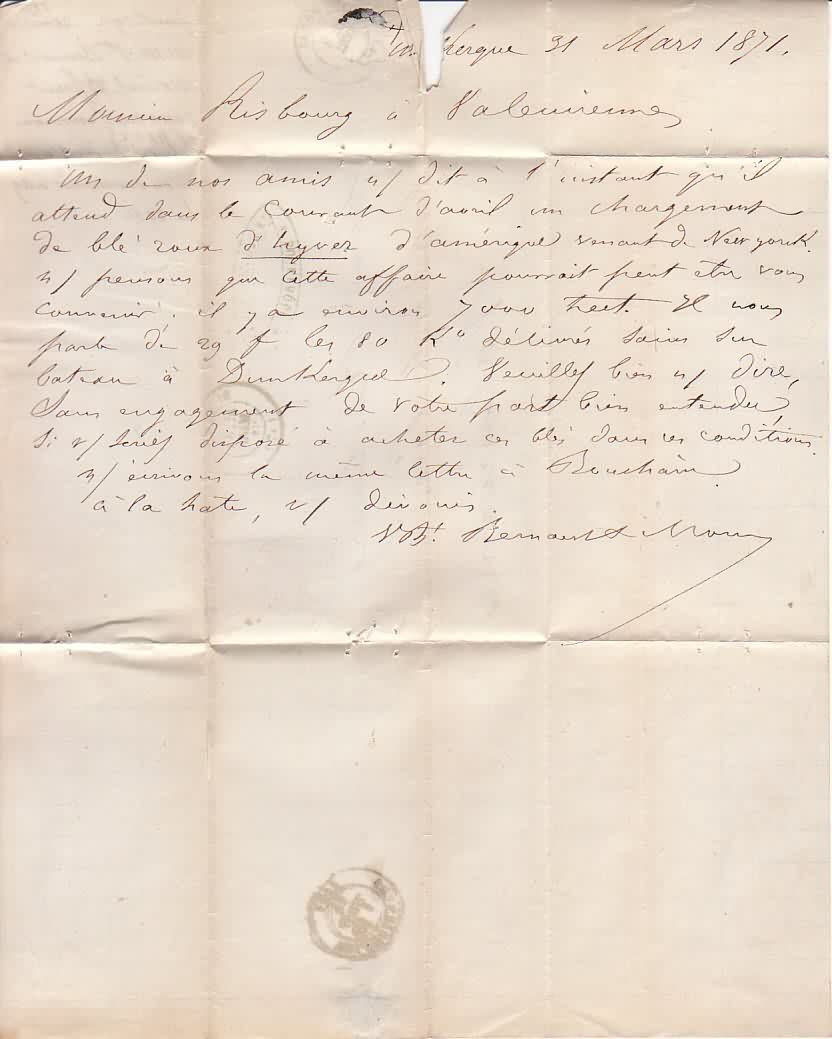 Dunkerque 31 Mars 1871.
Monsieur Risbourg à Valenciennes
Un de nos amis n/ dit à l'instant qu'il
attend dans le courant d'avril un chargement
de blé roux d'hyver d'amérique venant de New yorck.
n/ pensons que cette affaire pourrait peut être vous
convenir. il y a environ 7000 hect. Il nous
parle de 29 f les 80 Ko délivrés sains sur
bateau à Dunkerque. Veuillez bien n/ dire,
sans engagement de votre part bien entendu,
si v/ seriez disposé à acheter ces blés dans ces conditions.
n/ écrivons la même lettre à Bouchain
à la hate, v/ dévoués.